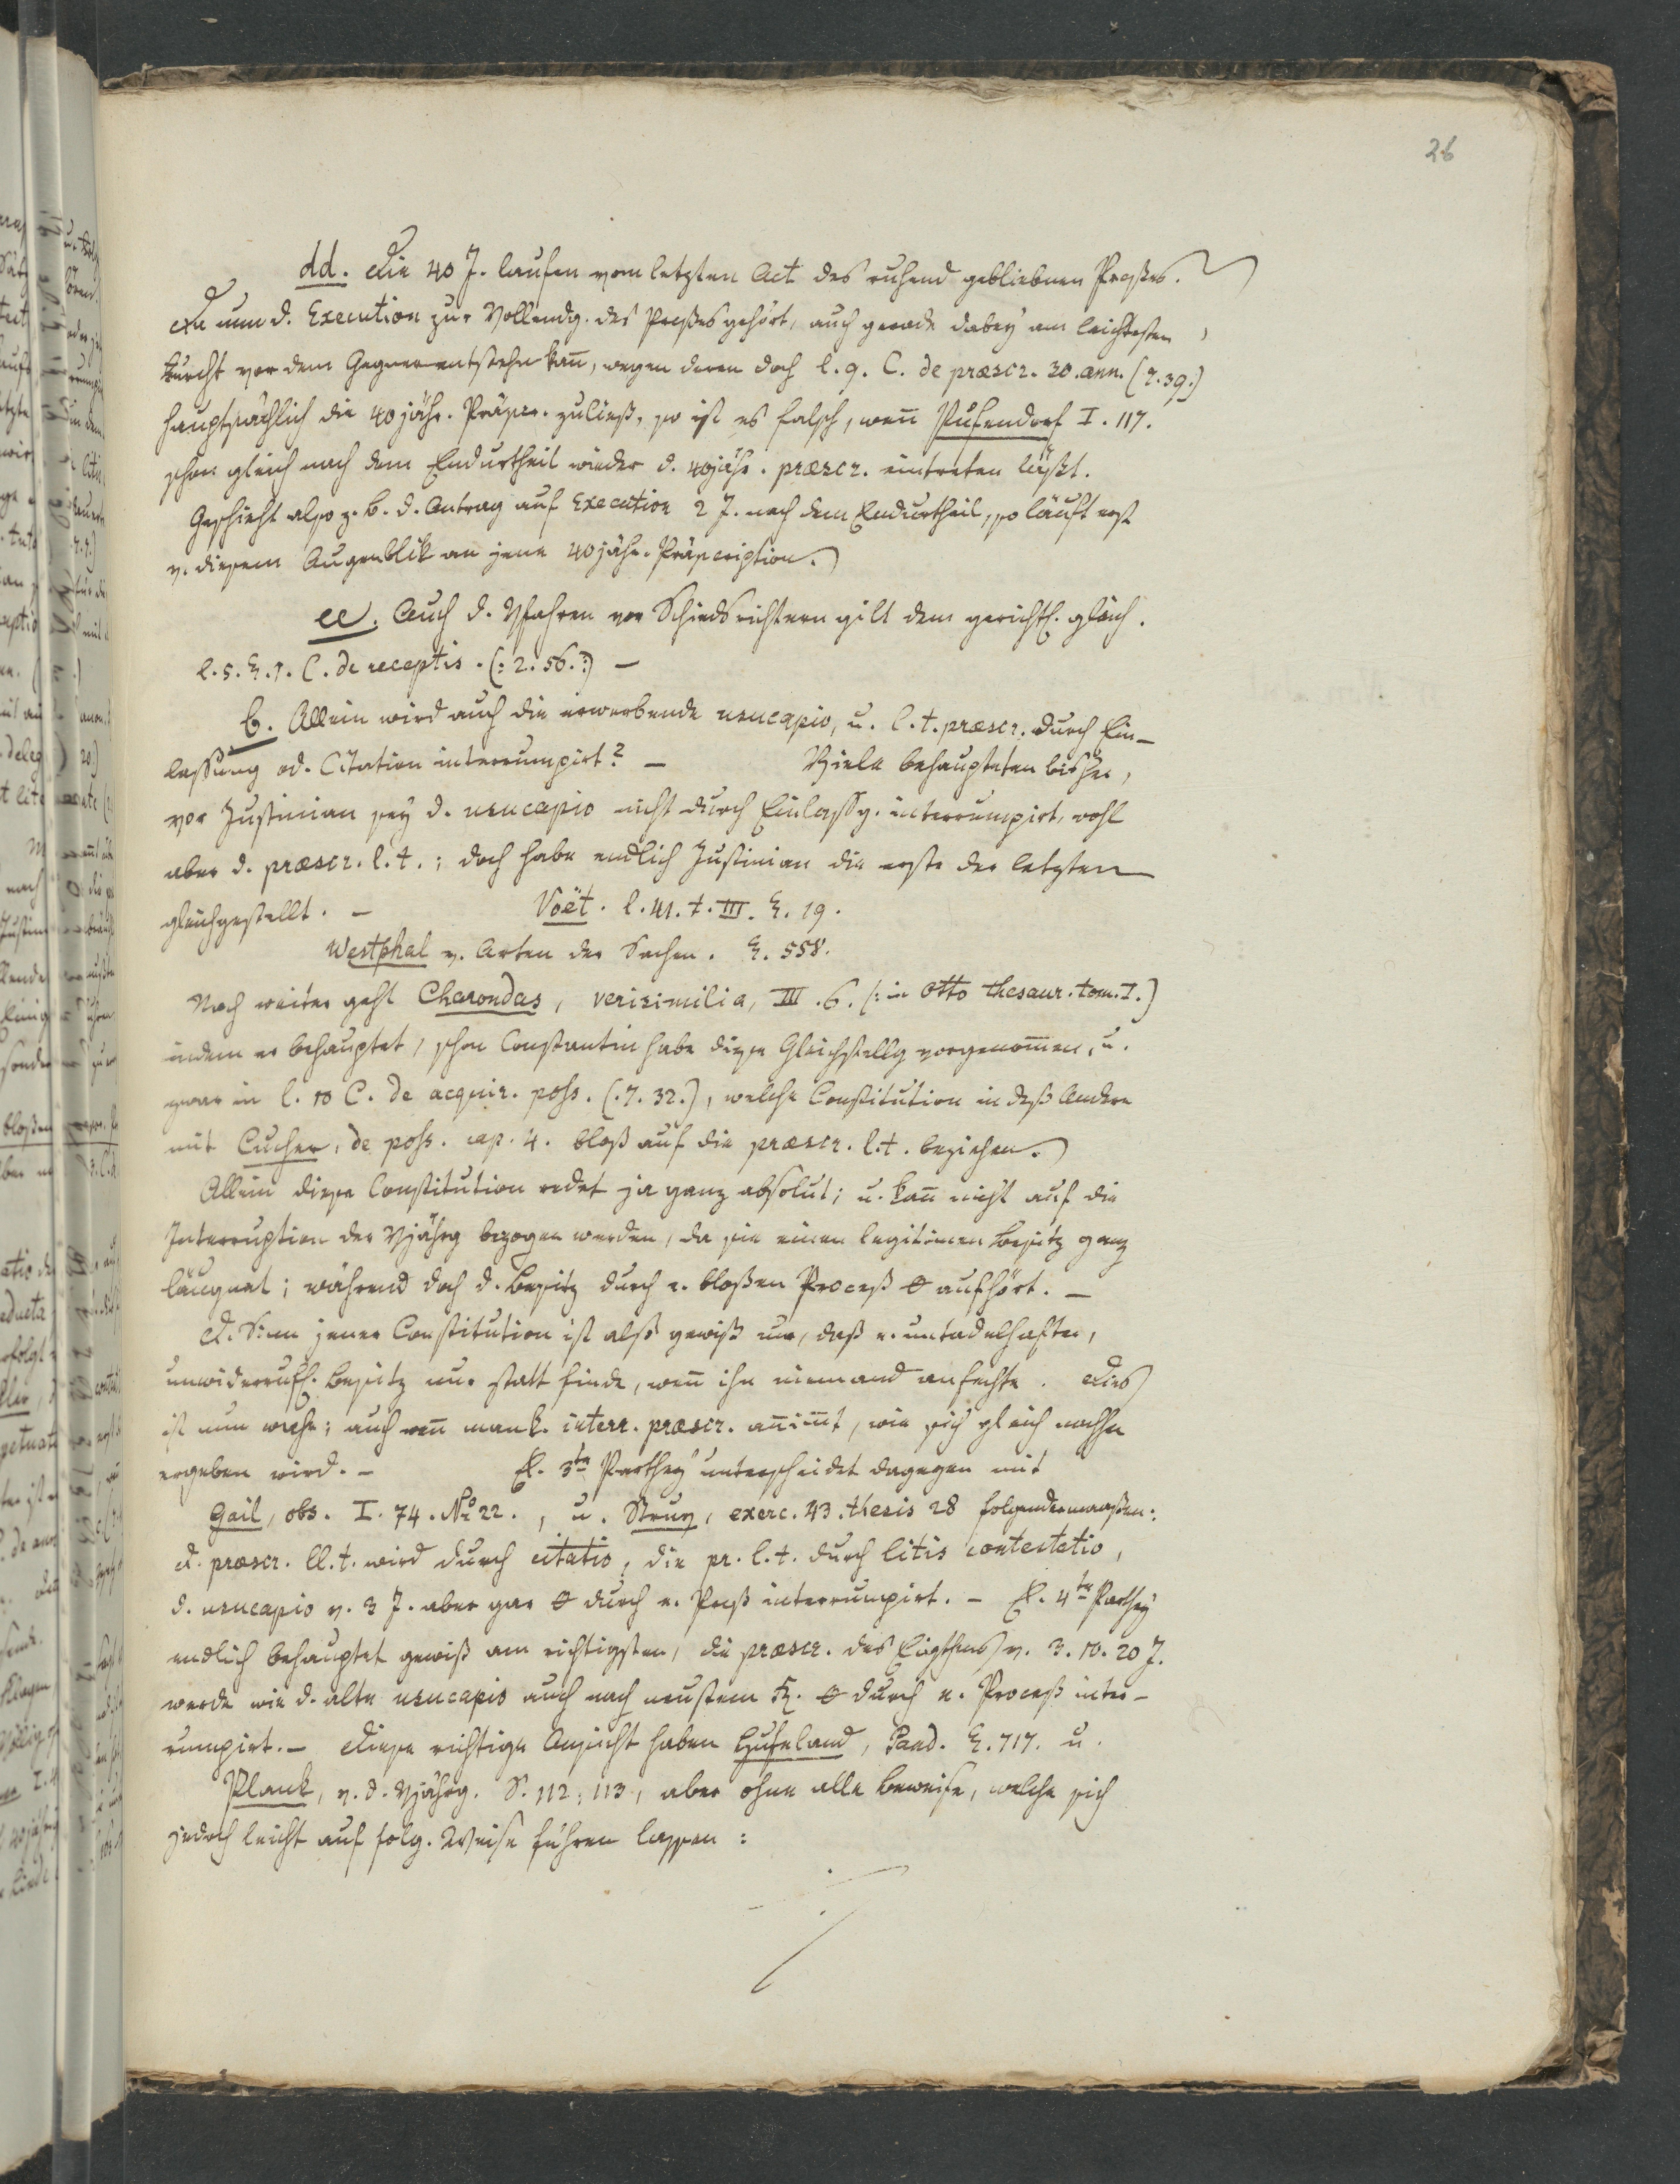 26
dd. Die 40 J. laufen vom letzten Act des ruhend gebliebnen Proßes.
Da nun d. Execution zur Vollendg. des Proßes gehört, auch gerade dabey am leichtesten
Furcht vor dem Gegner entstehn kan̄, wegen deren doch l. 9. C. de præscr. 30. ann. (7. 39.)
hauptsächlich die 40 jähr. Präscr. zuließ, so ist es falsch, wen̄ Pufendorf I. 117.
schon gleich nach dem Endurtheil wieder d. 40jähr. præscr. eintreten läßt.
Geschieht also z. B. d. Antrag auf Execution 2 J. nach dem Endurtheil, so läuft erst
v. diesem Augenblik an jene 40jähr. Präscription.)
ee. Auch d. Vfahren vor Schiedsrichtern gilt dem gerichtl. gleich.
l. 5. §. 1. C. de receptis. (: 2. 56. :) —
b. Allein wird auch die erwerbende usucapio, u. l. t. præscr. durch Ein-
lassung od. Citation interrumpirt? — Viele behaupteten bisher,
vor Justinian sey d. usucapio nicht durch Einlassg. interrumpirt, wohl
aber d. præscr. l. t.; doch habe endlich Justinian die erste der letzten
gleichgestellt. — Voët. l. 41. t. III. §. 19.
Westphal v. Arten der Sachen. §. 558.
Noch weiter geht Charondas, verisimilia, III. 6. (: in Otto thesaur. tom. I.)
indem er behauptet, schon Constantin habe diese Gleichstellg vorgenom̄en, u.
zwar in l. 10 C. de acquir. poss. (. 7. 32.), welche Constitution indeß Andere
mit Cuper, de poss. cap. 4. bloß auf die præscr. l. t. beziehen.)
Allein diese Constitution redet ja ganz absolut; u. kan̄ nicht auf die
Interruption der Vjährg bezogen werden, da sie einen legitimen Besitz ganz
läugnet; während doch d. Besitz durch e. bloßen Proceß θ aufhört. —
D. Sinn jener Constitution ist alß gewiß nur, daß e. untadelhafter,
unwiderrufl. Besitz nur statt finde, wen̄ ihn niemand anfechte. Dies
ist nun wahr; auch wen̄ man k. interr. præscr. an̄im̄t, wie sich gleich nachher
ergeben wird. — E. 3te Parthey unterscheidet dagegen mit
Gail, obs. I. 74. No 22., u. Struv, exerc. 43. thesis 28 folgendermaaßen:
d. præscr. ll. t. wird durch citatio, die pr. l. t. durch litis contestatio,
d. usucapio v. 3 J. aber gar θ durch e. Proß interrumpirt. — E. 4te Parthey
endlich behauptet gewiß am richtigsten, die præscr. des Eigthums v. 3. 10. 20 J.
werde wie d. alte usucapio auch nach neustem R. θ durch e. Proceß inter-
rumpirt. — Diese richtige Ansicht haben Hufeland, Pand. §. 717. u.
Plank, v. d. Vjährg. S. 112, 113, aber ohne alle Beweise, welche sich
jedoch leicht auf folg. Weise führen lassen: